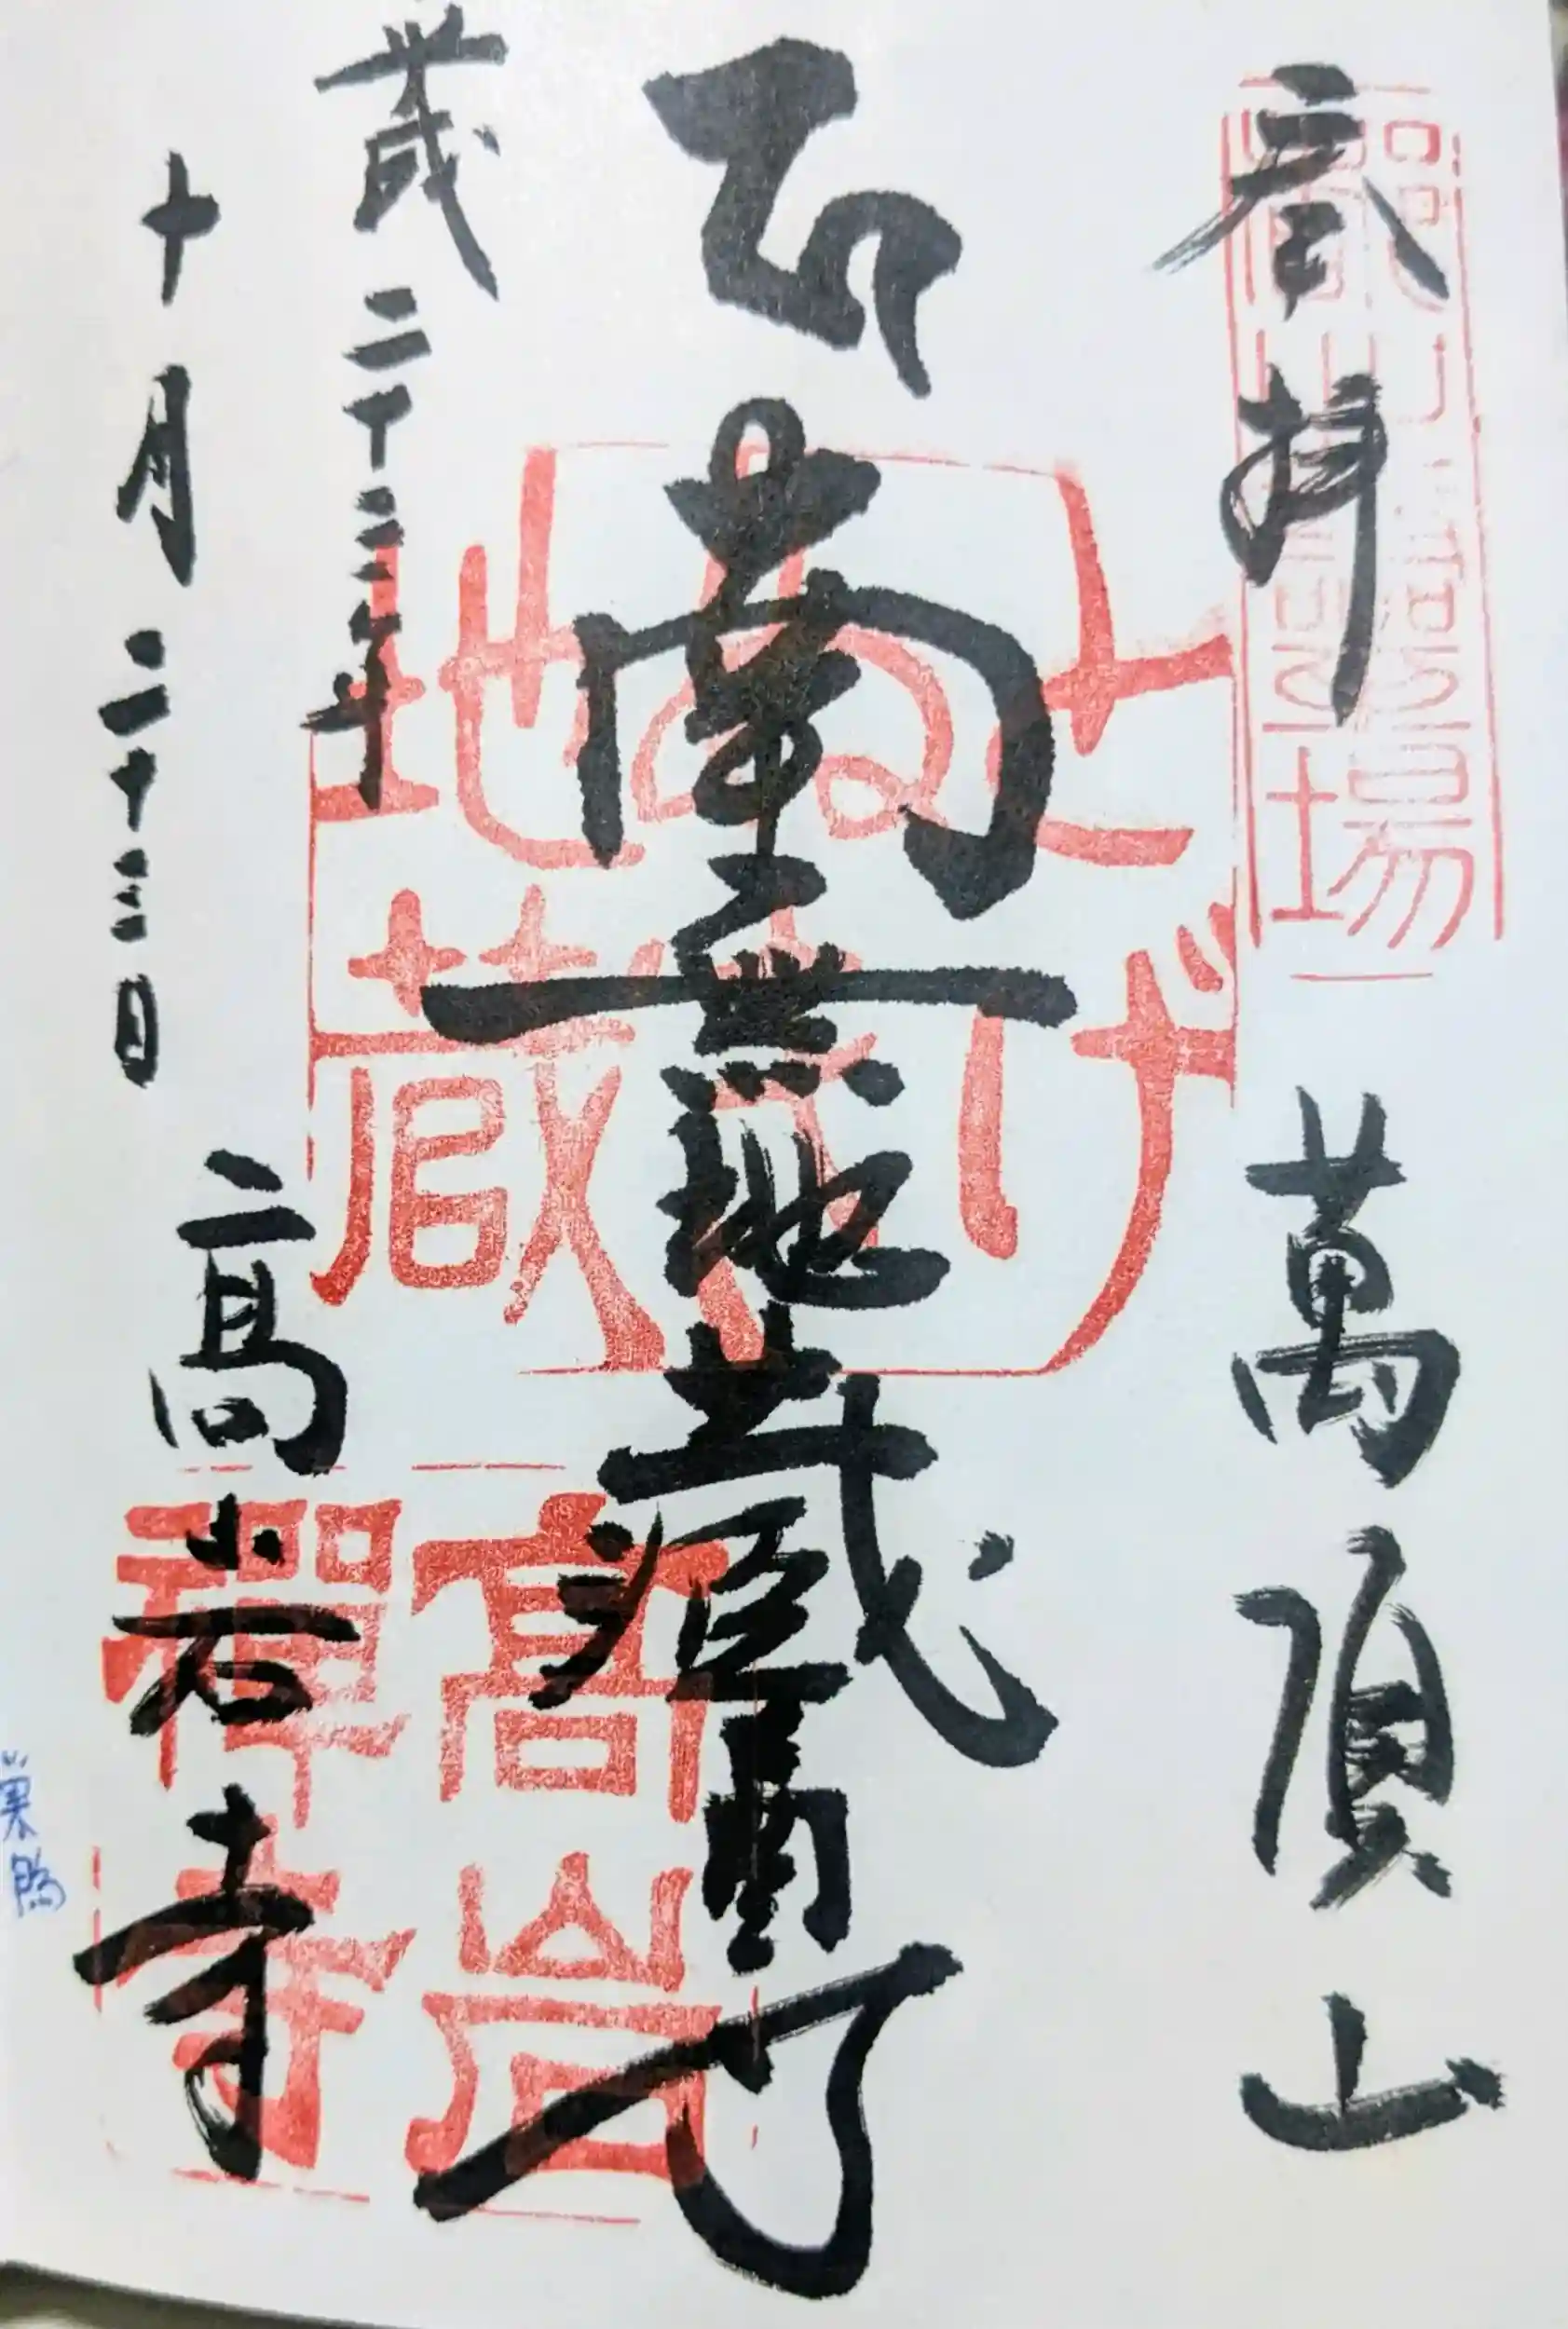 奉拝 萬頂山
南無地藏尊
歳二十三年
十月二十三日
高岩寺
とげ
ぬき
地蔵
高岩
禅寺
巣鴨